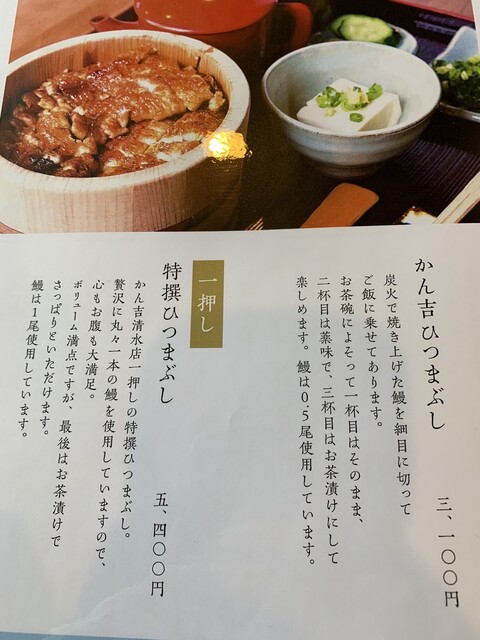 かん吉ひつまぶし
三、一〇〇円
炭火で焼き上げた鰻を細目に切って
ご飯に乗せてあります。
お茶碗によそって一杯目はそのまま、
二杯目は薬味で、三杯目はお茶漬けにして
楽しめます。鰻は0.5尾使用しています。
一押し
特撰ひつまぶし
五、四〇〇円
かん吉清水店一押しの特撰ひつまぶし。
贅沢に丸々一本の鰻を使用していますので、
心もお腹も大満足。
ボリューム満点ですが、最後はお茶漬けで
さっぱりといただけます。
鰻は1尾使用しています。